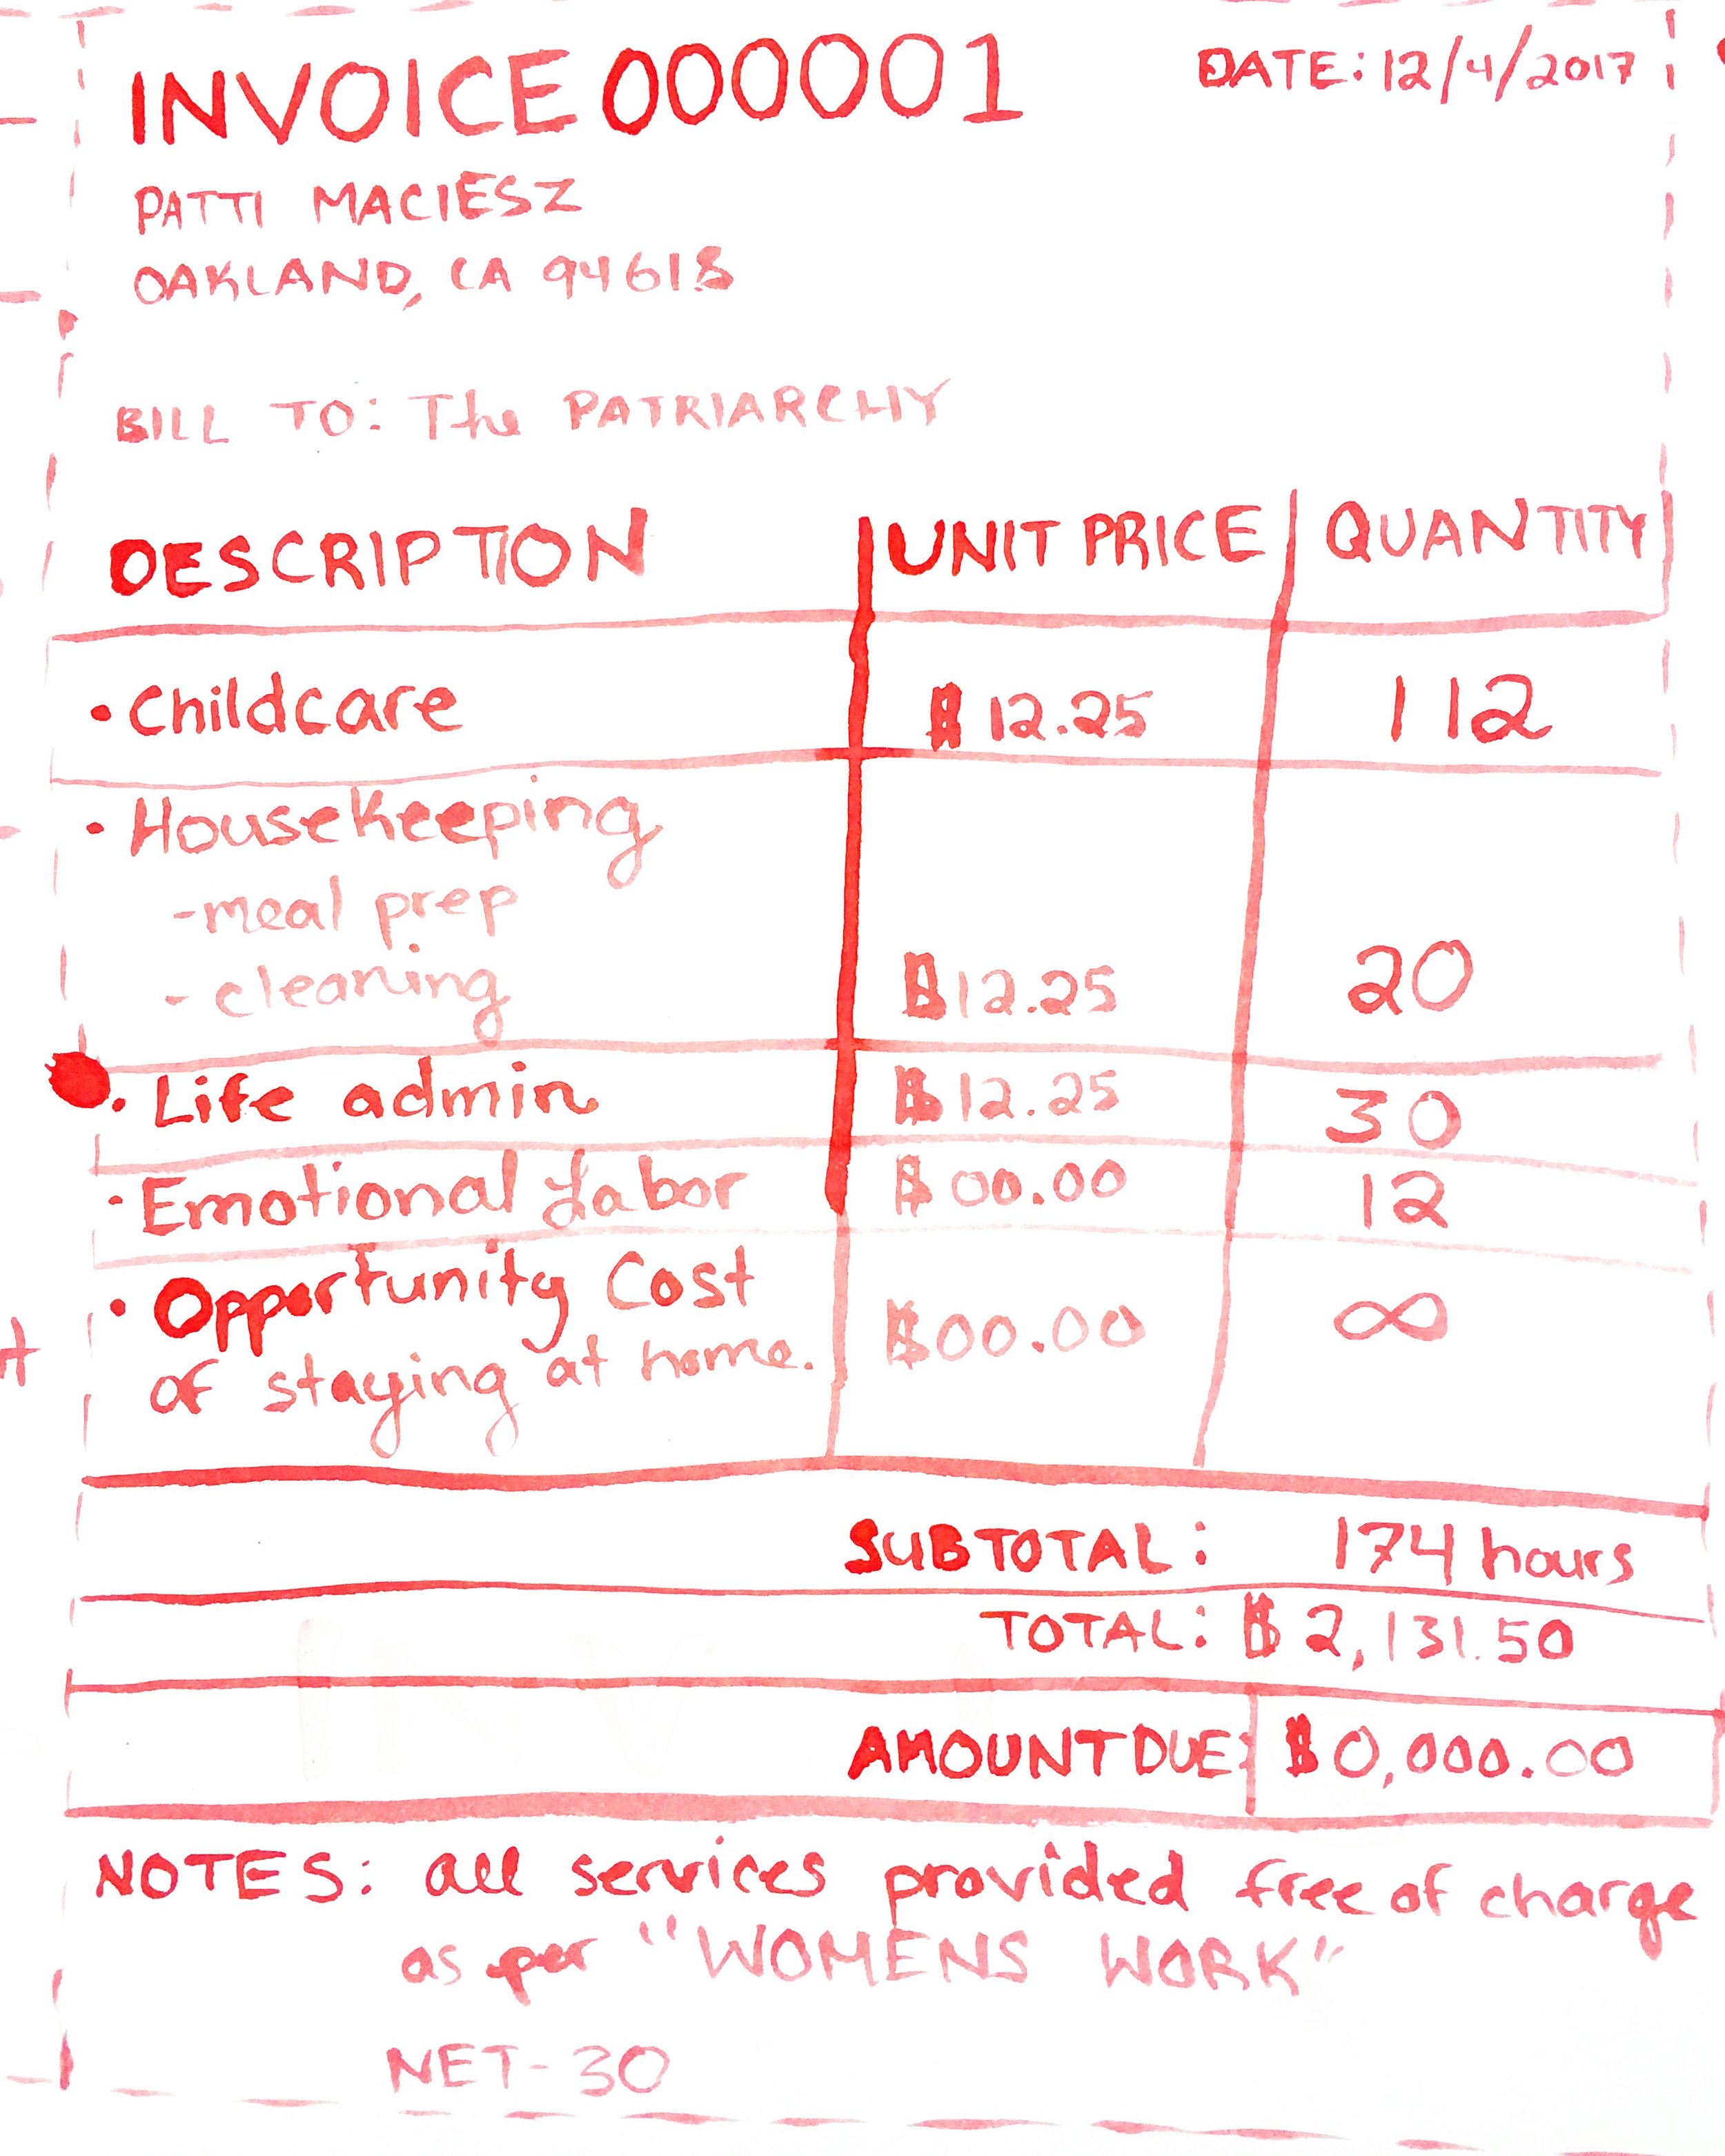 INVOICE 000001
DATE: 12/4/2017
PATTI MACIESZ
OAKLAND, CA 94618
BILL TO: The PATRIARCHY
DESCRIPTION UNIT PRICE QUANTITY
• Childcare $12.25 112
• Housekeeping
-meal prep
- cleaning $12.25 20
• Life admin $12.25 30
• Emotional Labor $00.00 12
• Opportunity Cost
of staying at home. $00.00 ∞
SUBTOTAL: 174 hours
TOTAL: $2,131.50
AMOUNT DUE: $0,000.00
NOTES: all services provided free of charge
as per "WOMENS WORK"
NET-30